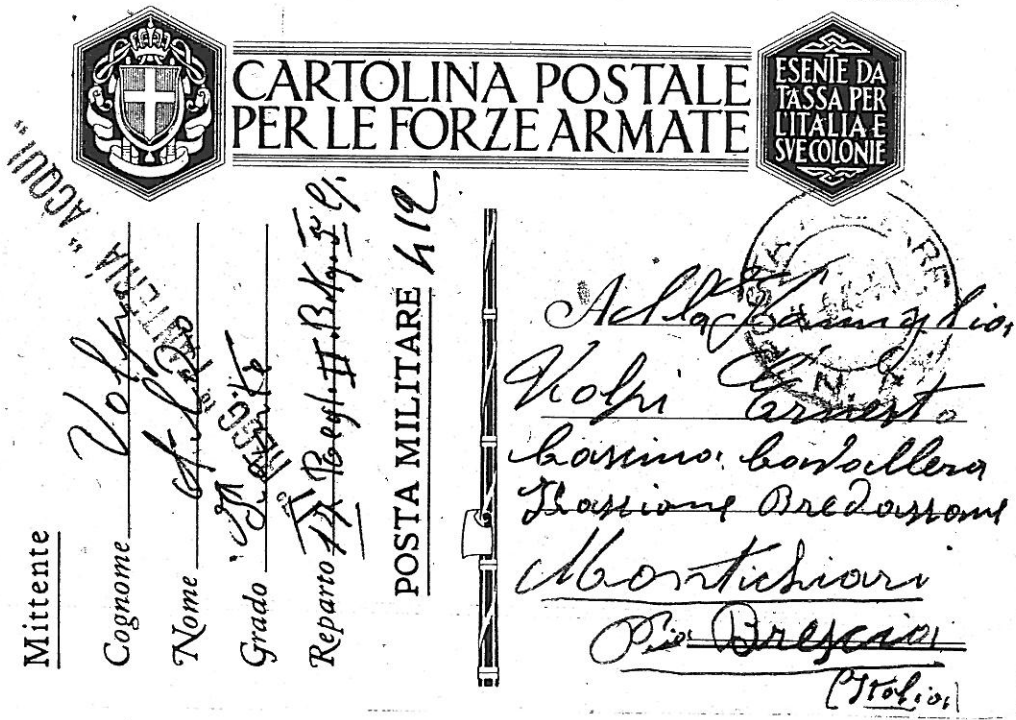 CARTOLINA POSTALE
PER LE FORZE ARMATE
ESENTE DA
TASSA PER
L'ITALIA E
SVE COLONIE
FANTERIA "ACQUI"
Mittente
Cognome Volpi
Nome
Grado
Reparto Regt II Btg.
POSTA MILITARE 412
Alla Famiglia
Volpi Ernesto
Cascina Cavallera
Bredazzane
Montichiari
Brescia
(Italia)